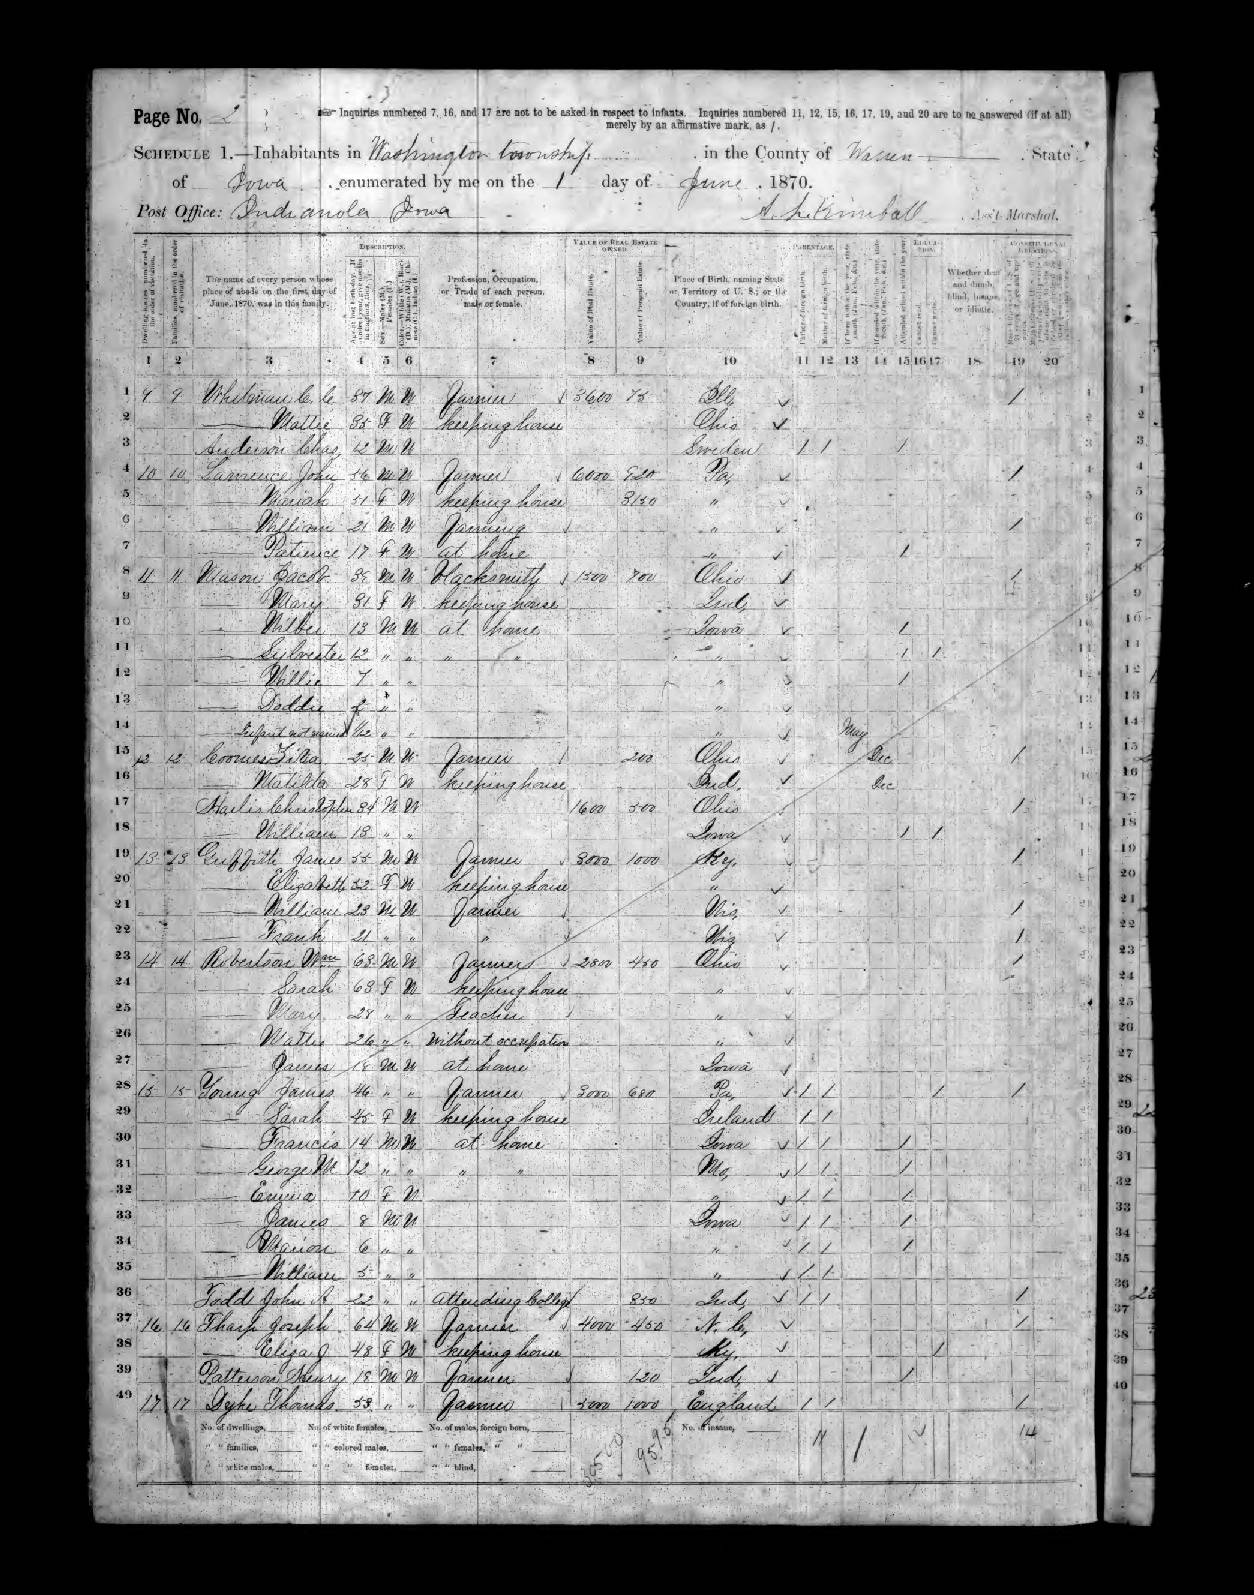 Page No. 2
Inquiries numbered 7, 16, and 17 are not to be asked in respect to infants. Inquiries numbered 11, 12, 15, 16, 17, 19, and 20 are to be answered (if at all)
merely by an affirmative mark, as /.
SCHEDULE 1.—Inhabitants in Washington township, in the County of Warren, State
of Iowa, enumerated by me on the 1 day of June, 1870.
Post Office: Indianola Iowa A. L. Kimball, Ass't Marshal.
DESCRIPTION. VALUE OF REAL ESTATE OWNED. PARENTAGE. EDUCATION. CONSTITUTIONAL RELATIONS.
The name of every person whose place of abode on the first day of June, 1870, was in this family. Profession, Occupation, or Trade of each person, male or female. Value of Real Estate. Value of Personal Estate. Place of Birth, naming State or Territory of U. S.; or the Country, if of foreign birth. Whether deaf and dumb, blind, insane, or idiotic.
1 2 3 4 5 6 7 8 9 10 11 12 13 14 15 16 17 18 19 20
1 9 9 Whitman C. C. 37 M W Farmer 3600 75 Ill, /
2 — Mattie 35 F W keeping house Ohio
3 Anderson Chas, 12 M W Sweden / / /
4 10 10 Lawrence John 56 M W Farmer 6000 920 Pa, /
5 — Mariah 51 F W keeping house 3150 "
6 — William 21 M W Farming " /
7 — Patience 17 F W at home " /
8 11 11 Mason Jacob 38 M W blacksmith 1500 700 Ohio /
9 — Mary 31 F W keeping house Ind,
10 — Wilber 13 M W at home Iowa /
11 — Sylvester 12 " " " " " / /
12 — Willie 7 " " " /
13 — Doddie 2 " " "
14 Infant not named 1/12 " " " May
15 12 12 Coomes 25 M W Farmer 200 Ohio Dec /
16 — Matilda 28 F W keeping house Ind. Dec
17 Christopher 34 M W 1600 500 Ohio /
18 — William 13 " " Iowa / /
19 13 13 Griffith James 55 M W Farmer 3000 1000 Ky, /
20 — Elizabeth 52 F W keeping house "
21 — William 23 M W Farmer /
22 — Frank 21 " " " /
23 14 14 Robertson Wm 63 M W Farmer 2800 450 Ohio /
24 — Sarah 63 F W keeping house "
25 — Mary 28 " " Teacher "
26 — Mattie 26 " " Without occupation "
27 — James 18 M W at home Iowa
28 15 15 Young James 46 " " Farmer 3000 680 Pa, / / / /
29 — Sarah 45 F W keeping house Ireland / /
30 — Francis 14 M W at home Iowa / / /
31 — George W 12 " " " " Mo, / / /
32 — Emma 10 F W " / / /
33 — James 8 M W Iowa / / /
34 — Marion 6 " " " / / /
35 — William 5 " " " / /
36 Todd John A 22 " " Attending College 850 Ind, / / /
37 16 16 Tharp Joseph 64 M W Farmer 4000 450 N. C, /
38 — Eliza J 48 F W keeping house Ky. /
39 Patterson Henry 18 M W Farmer 120 Ind, /
40 17 17 Dyke Thomas 53 " " Farmer 5000 1000 England / / /
No. of dwellings, No. of white females, No. of males, foreign born, No. of insane,
" " families, " " colored males, " " females, " "
" " white males, " " " females, " " blind,
11 / 14